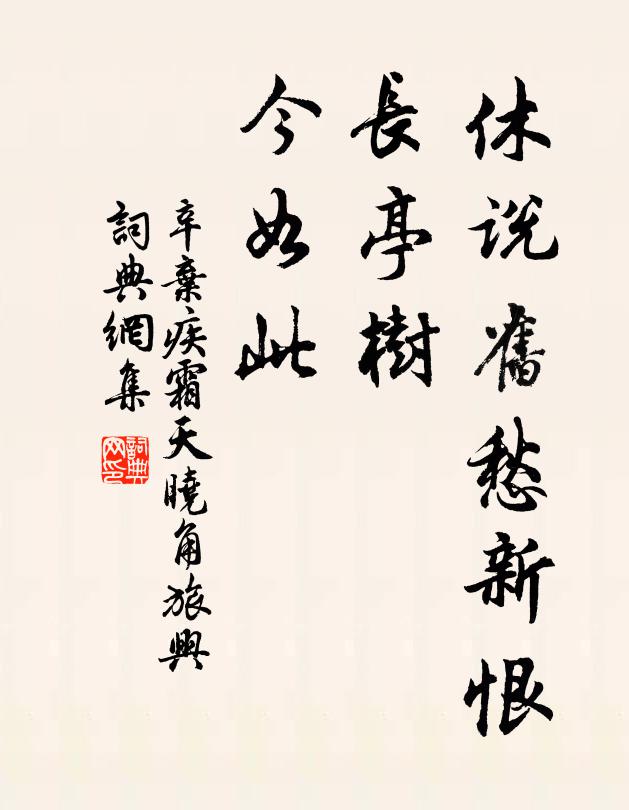 休说舊愁新恨
長亭樹
今如此
辛棄疾霜天曉角旅興
詞典網集
詞典网印